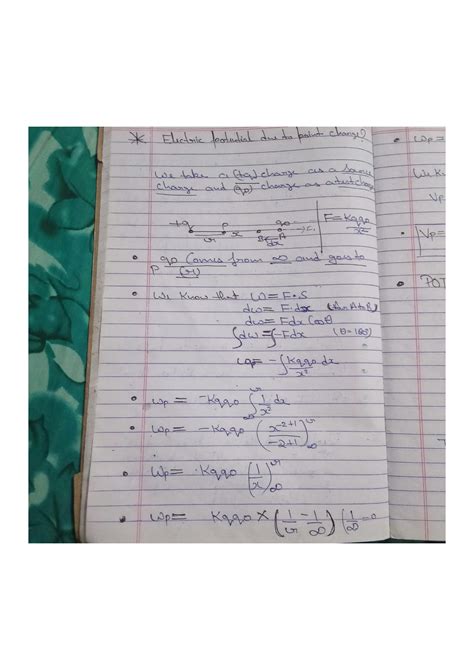 * Electric potential due to point charge?
We take a (+q) charge as a source
charge and (q0) charge as a test charge
+q P q0 F = Kqq0
r x B A dx x²
• q0 comes from ∞ and goes to
P (r)
• We know that W = F·S
dw = F·dx (from A to B)
dw = Fdx cosθ
∫dw = ∫-Fdx (θ=180°)
= -∫ Kqq0 dx / x²
• Wp = -Kqq0 ∫∞^r 1/x² dx
• Wp = -Kqq0 (x^-2+1 / -2+1)∞^r
• Wp = Kqq0 (1/x)∞^r
• Wp = Kqq0 × (1/r - 1/∞) (1/∞ = 0
• Wp =
We K
Vp
Vp =
• POT